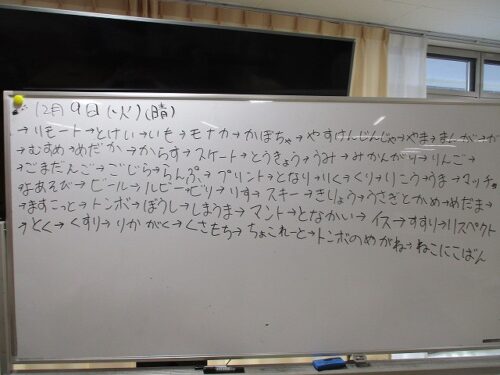 12月9日(火)(晴)
→リモート→とけい→いも→モナカ→かぼちゃ→やすけんじんじゃ→やま→まんが→が
→むすめ→めだか→からす→スケート→とうきょう→うみ→みかんがり→りんご→
→ごまだんご→ごじら→らんぷ→プリント→となり→りく→くり→りこう→うま→マッチ→
なあそび→ビール→ルビー→ビリ→りす→スキー→きりょう→うさぎとかめ→めだま→
→ますこっと→トンボ→ぼうし→しまうま→マント→となかい→イス→すすり→リスペクト
→とく→くすり→りかがく→くさもち→ちょこれーと→トンボのめがね→ねこにこばん